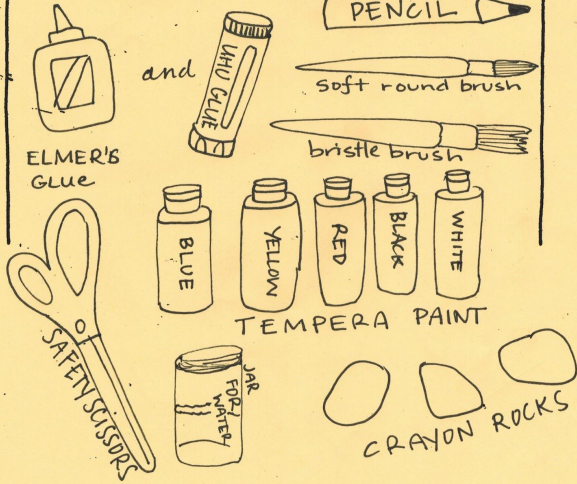 PENCIL
and
UHU GLUE
soft round brush
bristle brush
ELMER'S
GLUE
BLUE
YELLOW
RED
BLACK
WHITE
TEMPERA PAINT
SAFETY SCISSORS
JAR
FOR
WATER
CRAYON ROCKS